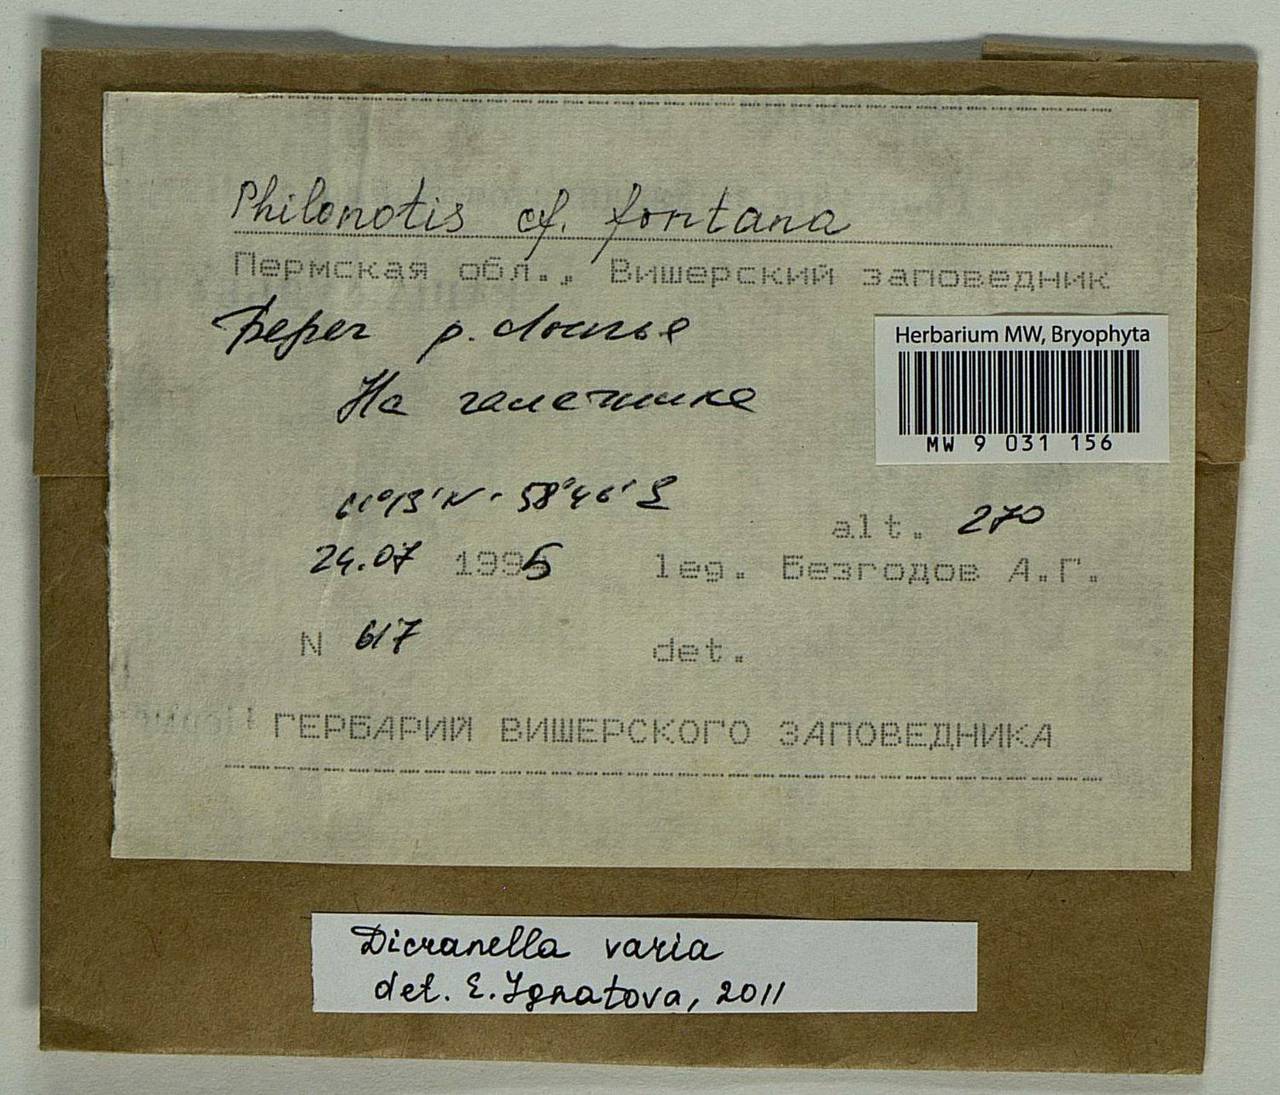 Philonotis cf. fontana
Пермская обл., Вишерский заповедник
Берег р. Лопья
На галечнике
Herbarium MW, Bryophyta
MW 9 031 156
61°13'N · 58°46'E
alt. 270
24.07 1995 leg. Безгодов А.Г.
N 617 det.
ГЕРБАРИЙ ВИШЕРСКОГО ЗАПОВЕДНИКА
Dicranella varia
det. E. Ignatova, 2011